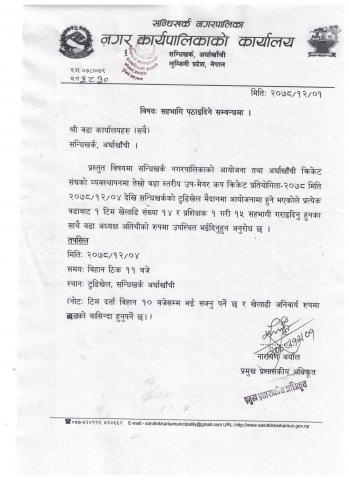 सन्धिखर्क नगरपालिका
नगर कार्यपालिकाको कार्यालय
सन्धिखर्क, अर्घाखाँची
लुम्बिनी प्रदेश, नेपाल
प.सं. ०७८/०७९
च.नं. १८३०
मिति: २०७८/१२/०१
विषय: सहभागि पठाइदिने सम्बन्धमा ।
श्री वडा कार्यालयहरु (सबै)
सन्धिखर्क, अर्घाखाँची ।
प्रस्तुत विषयमा सन्धिखर्क नगरपालिकाको आयोजना तथा अर्घाखाँची क्रिकेट
संघको व्यवस्थापनमा तेस्रो वडा स्तरीय उप-मेयर कप क्रिकेट प्रतियोगिता-२०७८ मिति
२०७८/१२/०४ देखि सन्धिखर्कको टुडिखेल मैदानमा आयोजनामा हुने भएकोले प्रत्येक
वडाबाट १ टिम खेलाडि संख्या १४ र प्रशिक्षक १ गरी १५ सहभागी गराइदिनु हुनका
साथै वडा अध्यक्ष अतिथीको रुपमा उपस्थित भईदिनुहुन अनुरोध छ ।
तपसिल
मिति: २०७८/१२/०४
समय: बिहान ठिक ११ बजे
स्थान: टुडिखेल, सन्धिखर्क अर्घाखाँची
(नोट: टिम दर्ता बिहान १० बजेसम्म भई सक्नु पर्ने छ र खेलाडी अनिवार्य रुपमा
वडाको बासिन्दा हुनुपर्ने छ।)
२०७८/१२/०१
नारायण अर्याल
प्रमुख प्रशासकीय अधिकृत
प्रमुख प्रशासकीय अधिकृत
☎०७७-४२०११५ ४२०६६२ E-mail:- sandhikharkamunicipality@gmail.com URL:-http://www.sandhikharkamun.gov.np